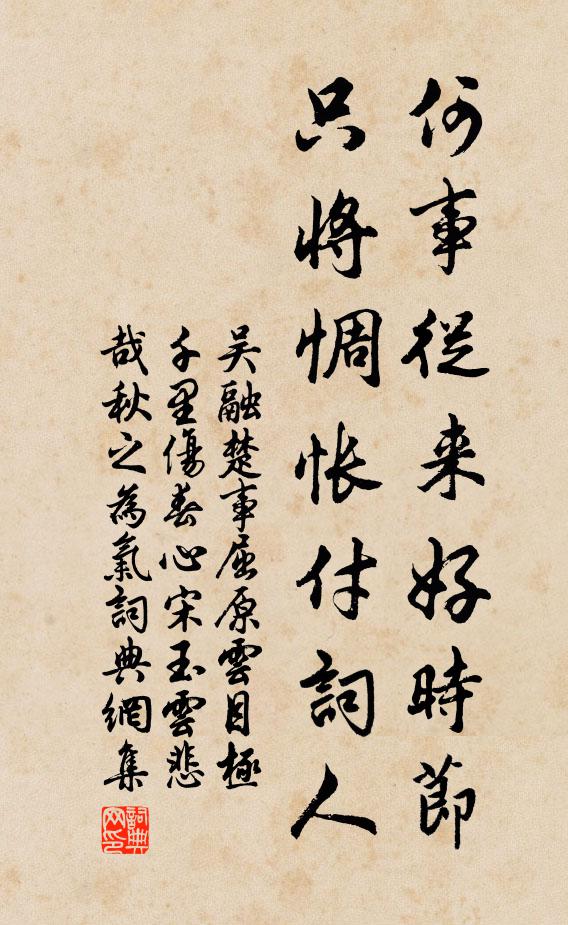 何事從来好時節
只將惆悵付詞人
吴融楚事屈原雲目極
千里傷春心宋玉雲悲
哉秋之為氣詞典網集
詞典
网印